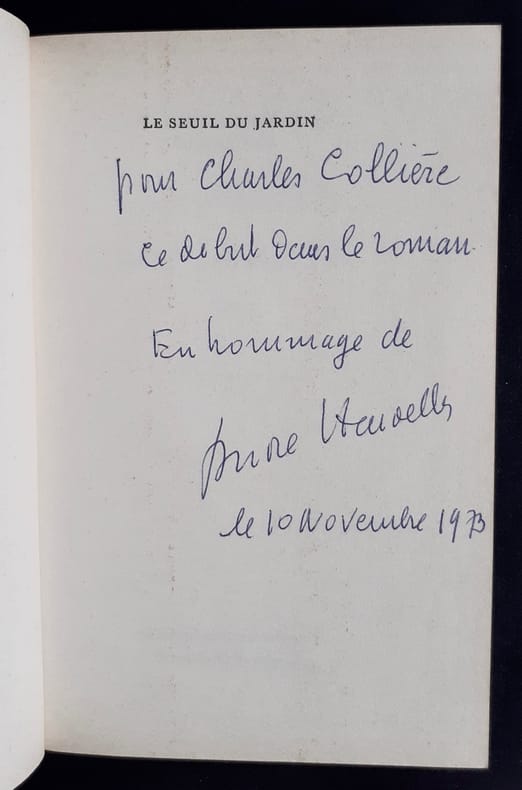 LE SEUIL DU JARDIN
pour Charles Collière
ce début dans le roman.
En hommage de
André Hardellet
le 10 Novembre 1973